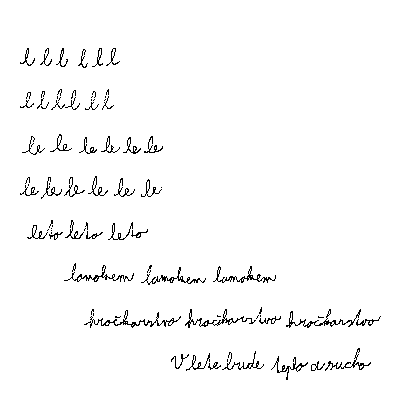 l l l l l l
l l l l l l
le le le le le le
le le le le le le
leto leto leto
lamohem lamohem lamohem
hračkarstvo hračkarstvo hračkarstvo
V lete bude teplo a sucho